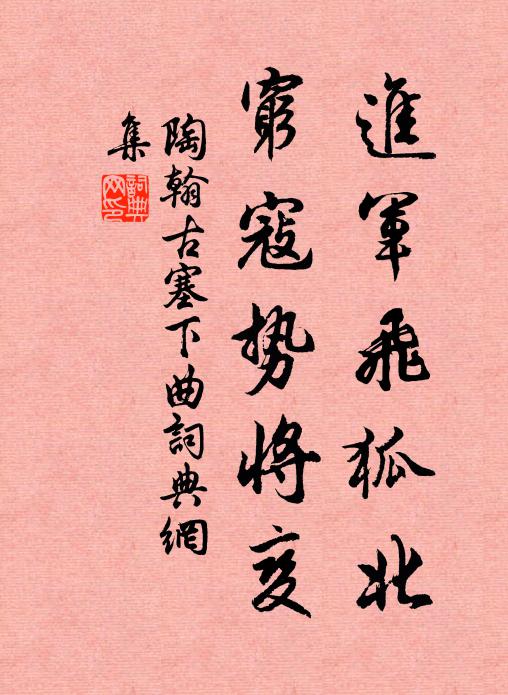 進軍飛狐北
窮寇勢將變
陶翰古塞下曲詞典網
集
詞典
网印